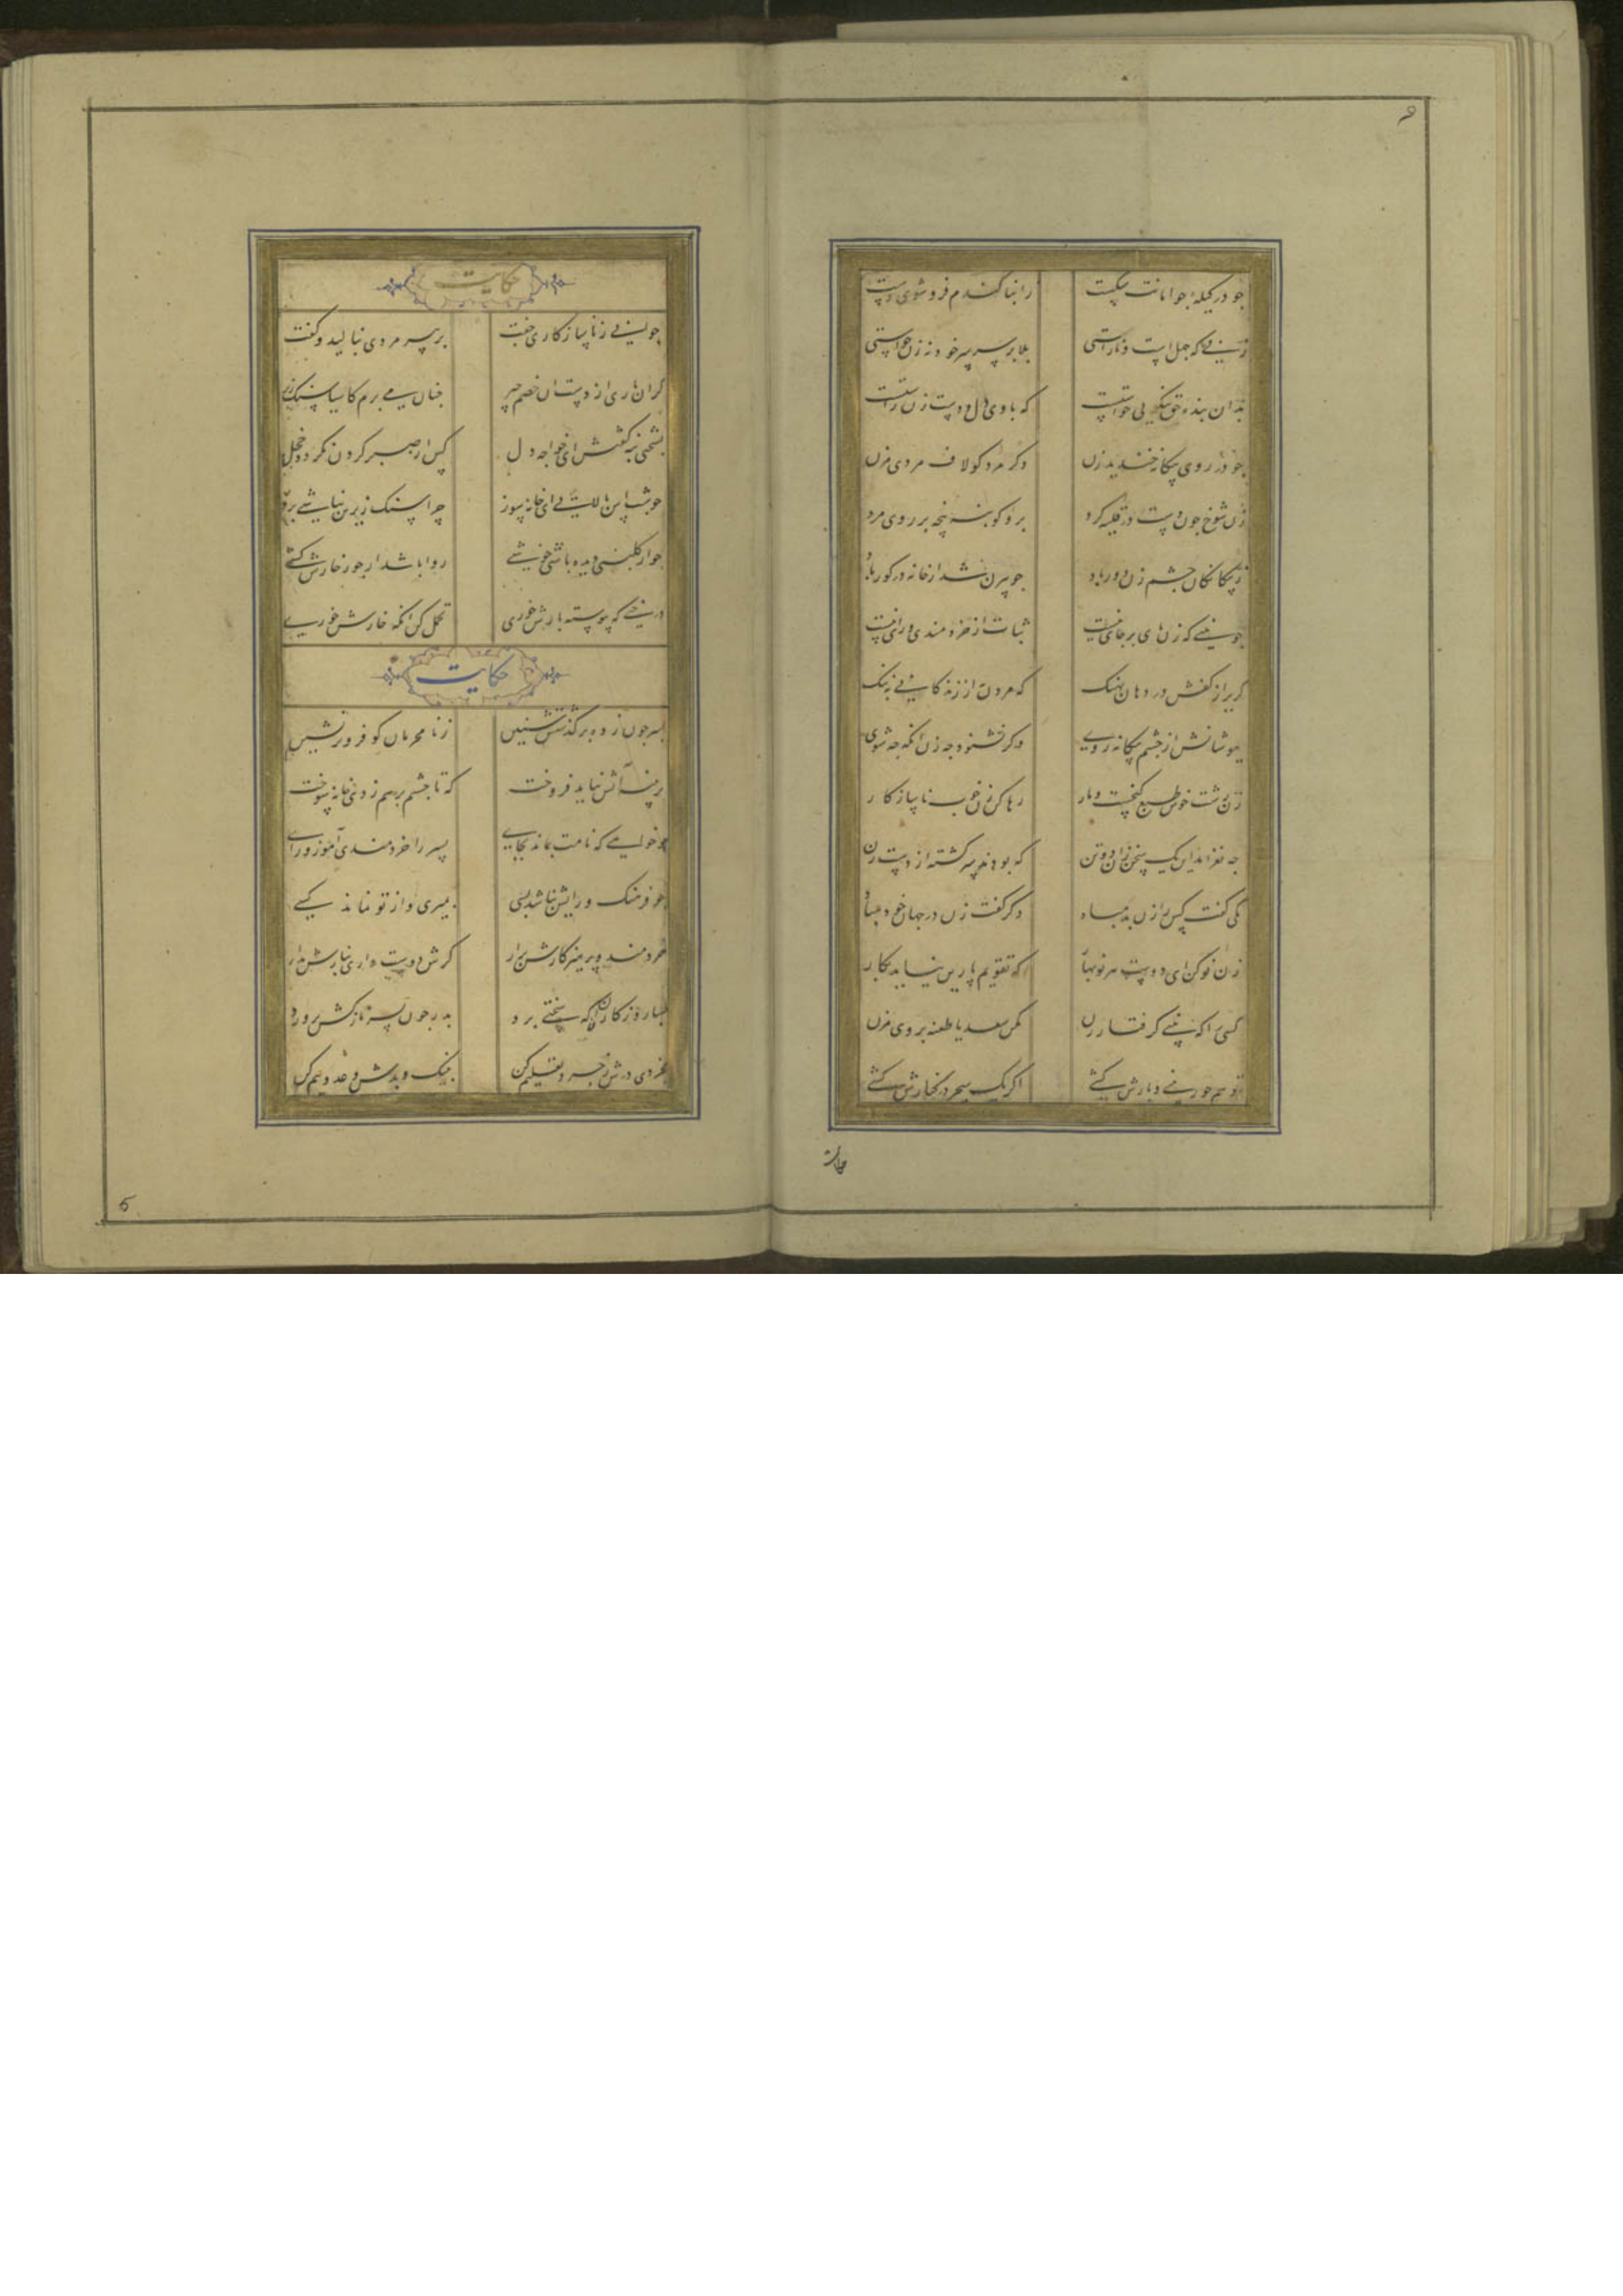 جو در کیله جو امانت شکست
از انبار گندم فرو شوی دست
زنی را که جهلست و ناراستی
بلا بر سر خود نه زن خواستی
بدان بنده حق نیکویی خواستست
که با وی دل و دست زن راستست
جو در روی بیکانه خندید زن
دکر مرد کو لاف مردی مزن
زن شوخ جون دست در قلیه کرد
برو کو بنه پنجه بر روی مرد
ز بیکانکان جشم زن دور باد
جو بیرون شد از خانه در کور باد
جو بینی که زن پای بر جای نیست
ثبات از خردمندی و رای نیست
کریز از کفش در دهان نهنک
که مردن از زندکانی به ننک
بپوشانش از جشم بیکانه روی
وکر نشنود جه زن آنکه جه شوی
زن زشت خوش طبع کنجست و بار
رها کن زن خوب ناسازکار
جه نغز امد این یک سخن زان دو تن
که بودند سرکشته از دست زن
یکی کفت کس را زن بد مباد
دکر کفت زن در جهان خود مباد
زن نو کن ای دوست هر نوبهار
که تقویم پارین نیاید بکار
کسی را که بینی کرفتار زن
مکن سعدیا طعنه بر وی مزن
تو هم جور بینی و بارش کشی
اکر یک سحر در کنارش کشی
حکایت
جوانی ز ناسازکاری جفت
بر پیر مردی بنالید و کفت
کران باری از دست ان خصم چیر
جنان می برم کاسیا سنک زیر
بسختی بنه کفتش ای خواجه دل
کس از صبر کردن نکردد خجل
بشب سنک بالایی ای خانه سوز
چرا سنک زیرین نباشی بروز
جو از کلبنی دیده باشی خوشی
روا باشد ار جور خارش کشی
درختی که پیوسته بارش خوری
تحمل کن انکه خارش خوری
حکایت
پسر جون ز ده بر گذشتش سنین
ز نا محرمان کو فروتر نشین
بر پنبه آتش نباید فروخت
که تا جشم بر هم زدی خانه سوخت
جو خواهی که نامت بماند بجای
پسر را خردمندی آموز و رای
جو فرهنک و رایش نباشد بسی
بمیری و از تو نماند کسی
خردمند و پرهیزکارش برار
کرش دوست داری بنازش مدار
بسا روزکارا که سختی برد
پدر جون پسر نازکش پرورد
بخردی درش زجر و تعلیم کن
بنیک و بدش وعده و بیم کن